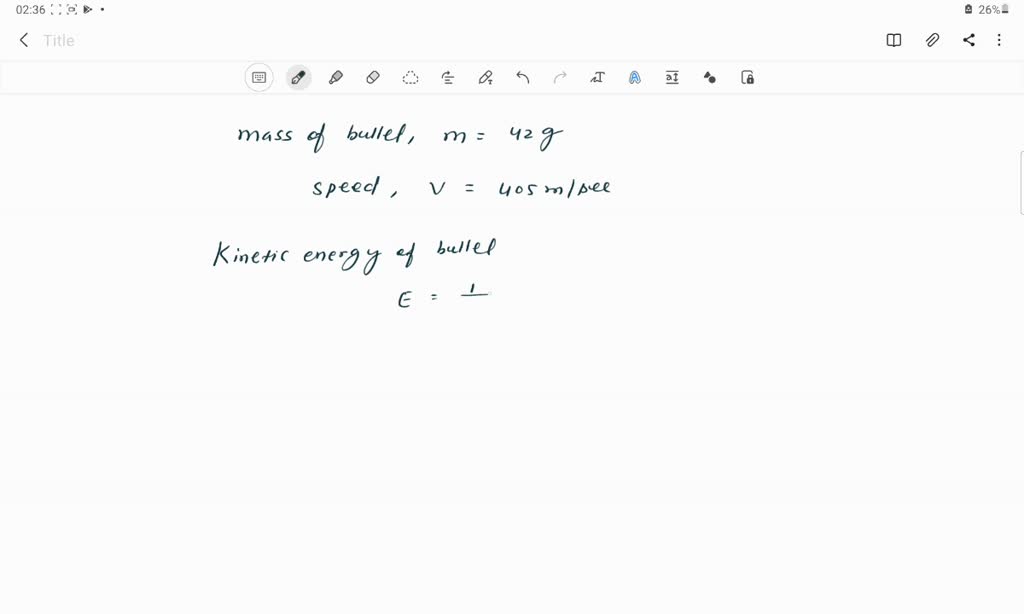 02:36 26%
Title
mass of bullet, m = 42 g
speed, v = 405 m/sec
Kinetic energy of bullet
E = 1